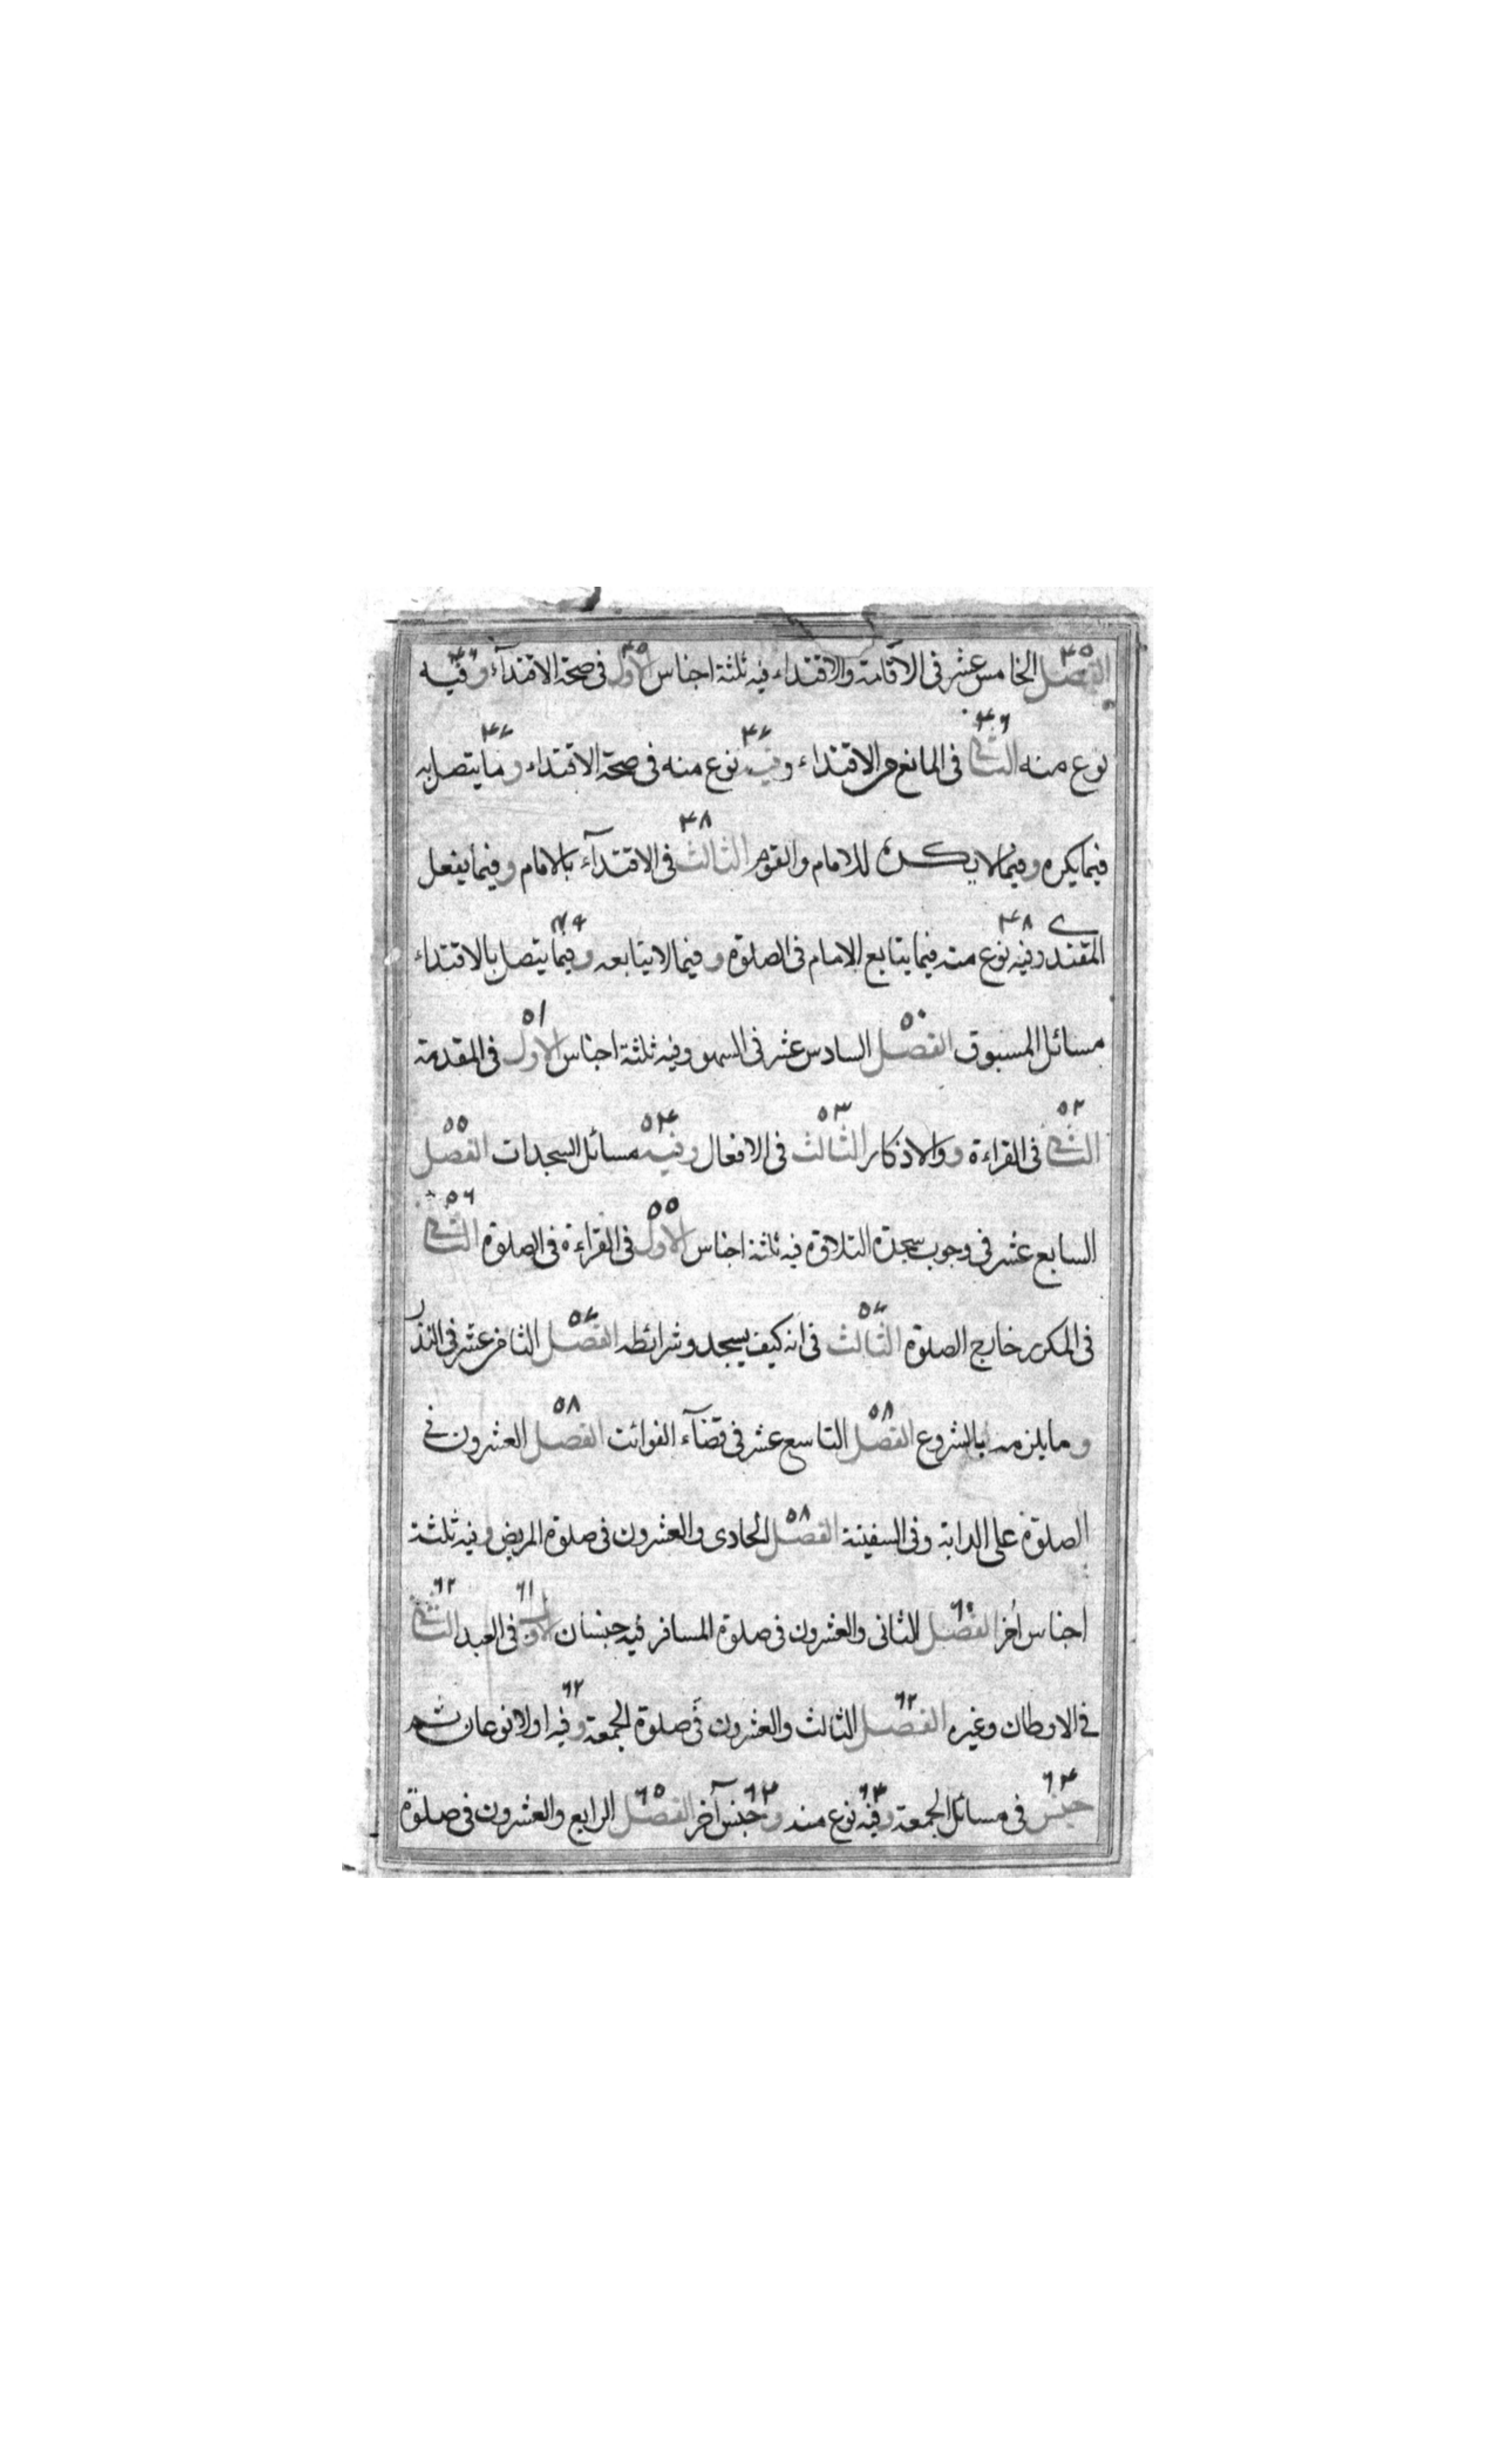 الفصل الخامس عشر فى الاقامة والاقتداء فيه ثلثة اجناس الاول فى صحة الاقتدآء وفيه
نوع منه الثانى فى المانع من الاقتداء وفيه نوع منه فى صحة الاقتداء وما يتصل به
فيما يكره وفيما لا يكره للامام والقوم الثالث فى الاقتدآء بالامام وفيما يفعل
المقتدى وفيه نوع منه فيما يتابع الامام فى الصلوة وفيما لا يتابعه وفيما يتصل بالاقتداء
مسائل المسبوق الفصل السادس عشر فى السهو وفيه ثلثة اجناس الاول فى المقدمة
الثانى فى القراءة و والاذكار الثالث فى الافعال وفيه مسائل السجدات الفصل
السابع عشر فى وجوب سجدة التلاوة فيه ثلثة اجناس الاول فى القراءة فى الصلوة الثانى
فى المكرر خارج الصلوة الثالث فى انه كيف يسجد وشرائطه الفصل الثامن عشر فى النذر
وما يلزمه بالشروع الفصل التاسع عشر فى قضآء الفوائت الفصل العشرون فى
الصلوة على الدابة وفى السفينة الفصل الحادى والعشرون فى صلوة المريض وفيه ثلثة
اجناس أخر الفصل الثانى والعشرون فى صلوة المسافر فيه جنسان الاول فى العبد الثانى
فى الاوطان وغيره الفصل الثالث والعشرون فى صلوة الجمعة وفيه اولا نوعان ثم
جنس فى مسائل الجمعة وفيه نوع منه وجنس آخر الفصل الرابع والعشرون فى صلوة